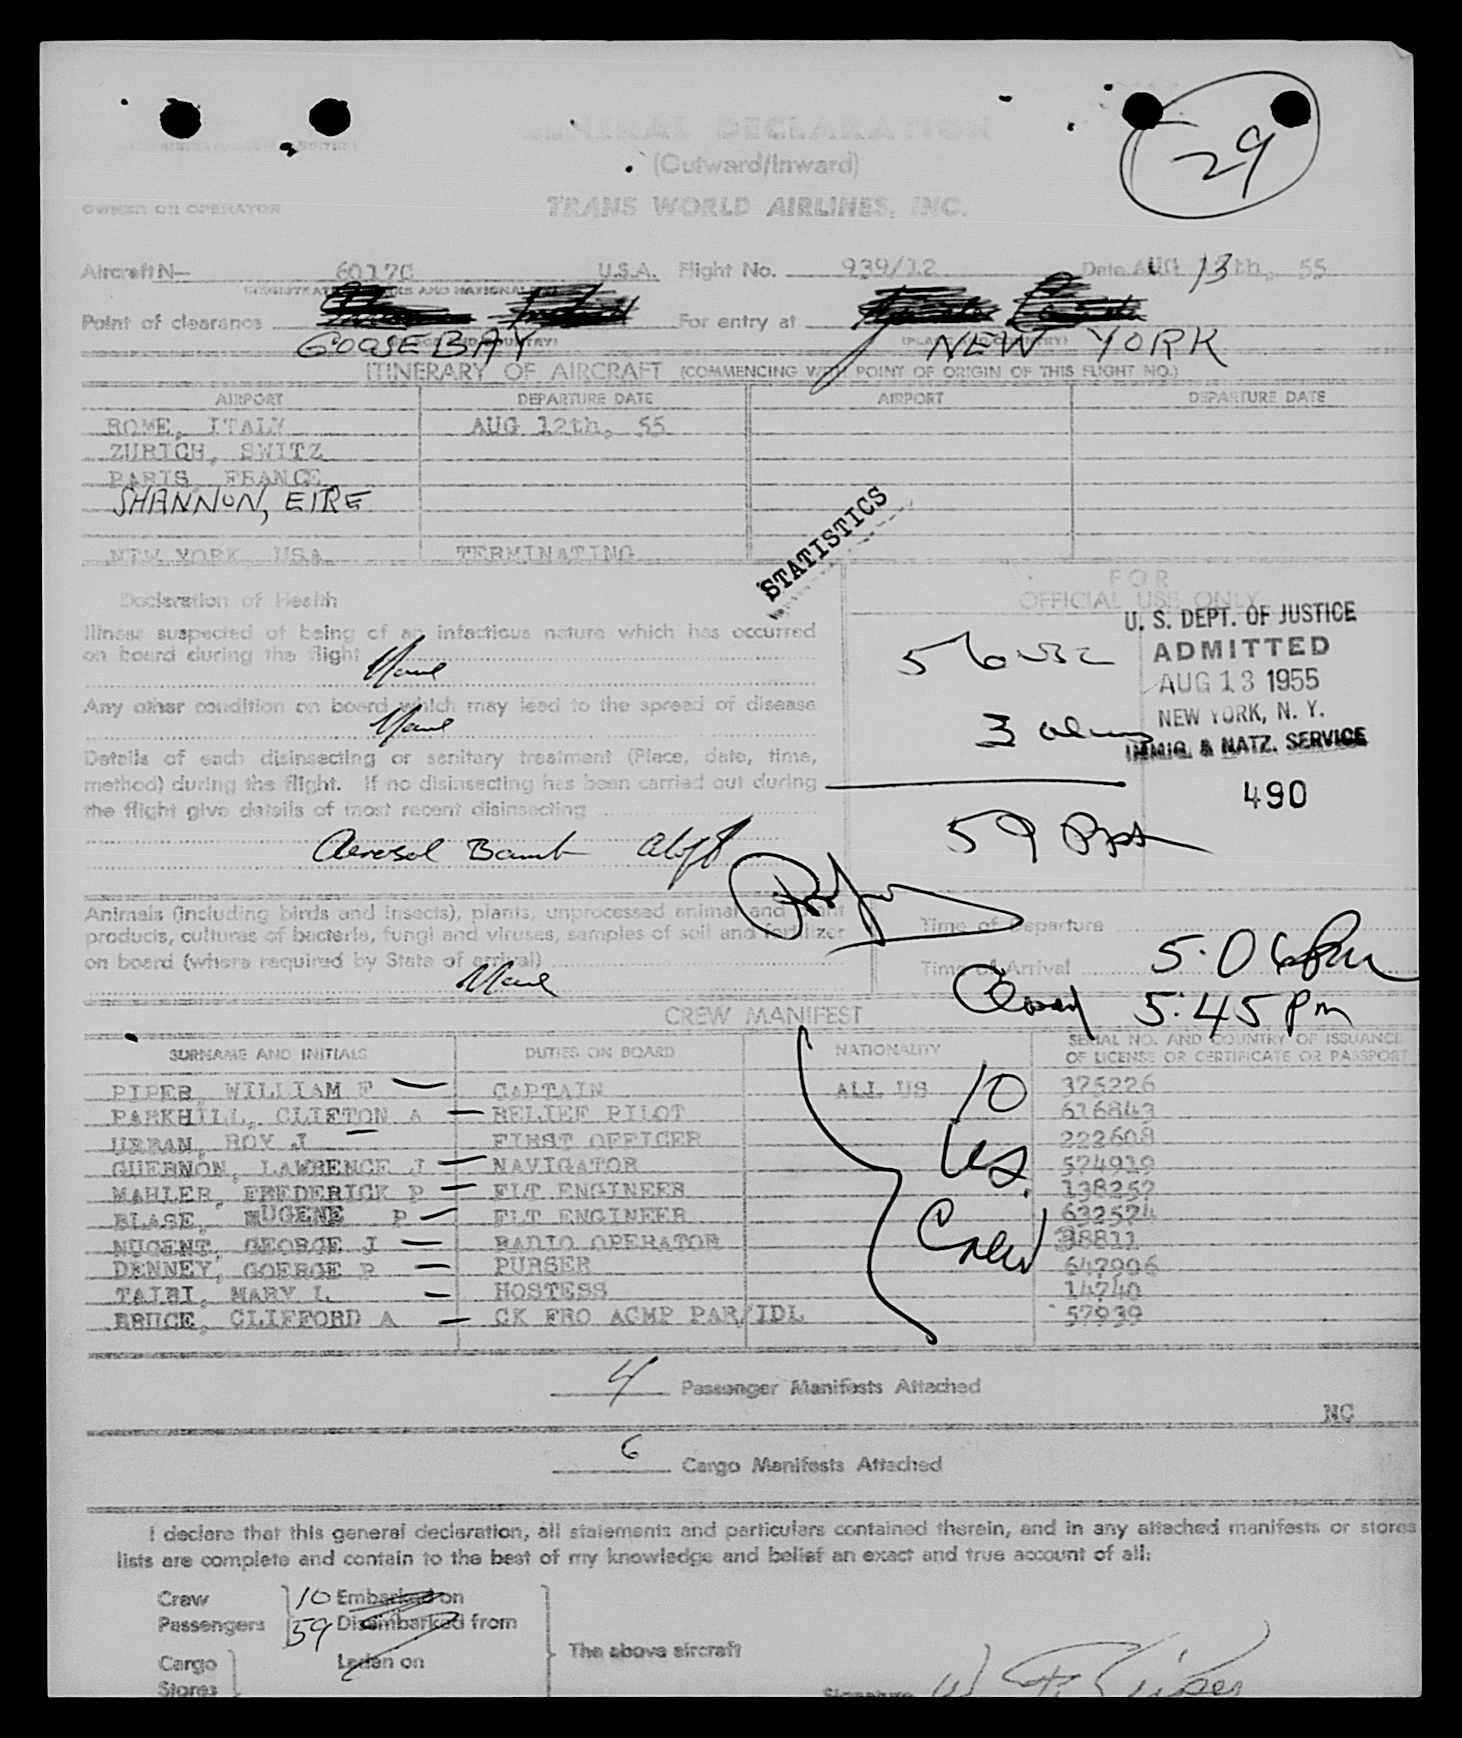 29
GENERAL DECLARATION
(Outward/Inward)
OWNER OR OPERATOR TRANS WORLD AIRLINES, INC.
Aircraft N— 6017C U.S.A. Flight No. 939/12 Date AUG 13th, 55
Point of clearance For entry at
GOOSE BAY NEW YORK
ITINERARY OF AIRCRAFT (COMMENCING WITH POINT OF ORIGIN OF THIS FLIGHT NO.)
AIRPORT DEPARTURE DATE AIRPORT DEPARTURE DATE
ROME, ITALY AUG 12th, 55
ZURICH, SWITZ
PARIS, FRANCE
SHANNON, EIRE
NEW YORK, USA TERMINATING
STATISTICS
Declaration of Health
Illness suspected of being of an infectious nature which has occurred
on board during the flight None
Any other condition on board which may lead to the spread of disease
None
Details of each disinsecting or sanitary treatment (Place, date, time,
method) during the flight. If no disinsecting has been carried out during
the flight give details of most recent disinsecting
Aerosol Bomb aloft
FOR
OFFICIAL USE ONLY
U. S. DEPT. OF JUSTICE
ADMITTED
AUG 13 1955
NEW YORK, N. Y.
IMMIG. & NATZ. SERVICE
490
56
3
59
Animals (including birds and insects), plants, unprocessed animal and plant
products, cultures of bacteria, fungi and viruses, samples of soil and fertilizer
on board (where required by State of arrival)
None
Time of Departure
Time of Arrival 5:06 PM
Closed 5:45 pm
CREW MANIFEST
SURNAME AND INITIALS DUTIES ON BOARD NATIONALITY SERIAL NO. AND COUNTRY OF ISSUANCE
OF LICENSE OR CERTIFICATE OR PASSPORT
PIPER, WILLIAM F CAPTAIN ALL US 375226
PARKHILL, CLIFTON A RELIEF PILOT 616843
URBAN, ROY J FIRST OFFICER 222608
GUERNON, LAWRENCE J NAVIGATOR 574939
MAHLER, FREDERICK P FLT ENGINEER 138257
BLASE, EUGENE P FLT ENGINEER 632574
NUGENT, GEORGE J RADIO OPERATOR 38811
DENNEY, GOERGE P PURSER 647906
TAIBI, MARY L HOSTESS 14740
BRUCE, CLIFFORD A CK FRO ACMP PAR/IDL 57939
10
US.
Crew
4 Passenger Manifests Attached
NC
6 Cargo Manifests Attached
I declare that this general declaration, all statements and particulars contained therein, and in any attached manifests or stores
lists are complete and contain to the best of my knowledge and belief an exact and true account of all:
Crew 10 Embarked on
Passengers 59 Disembarked from
The above aircraft
Cargo Laden on
Stores
Signature W F Piper